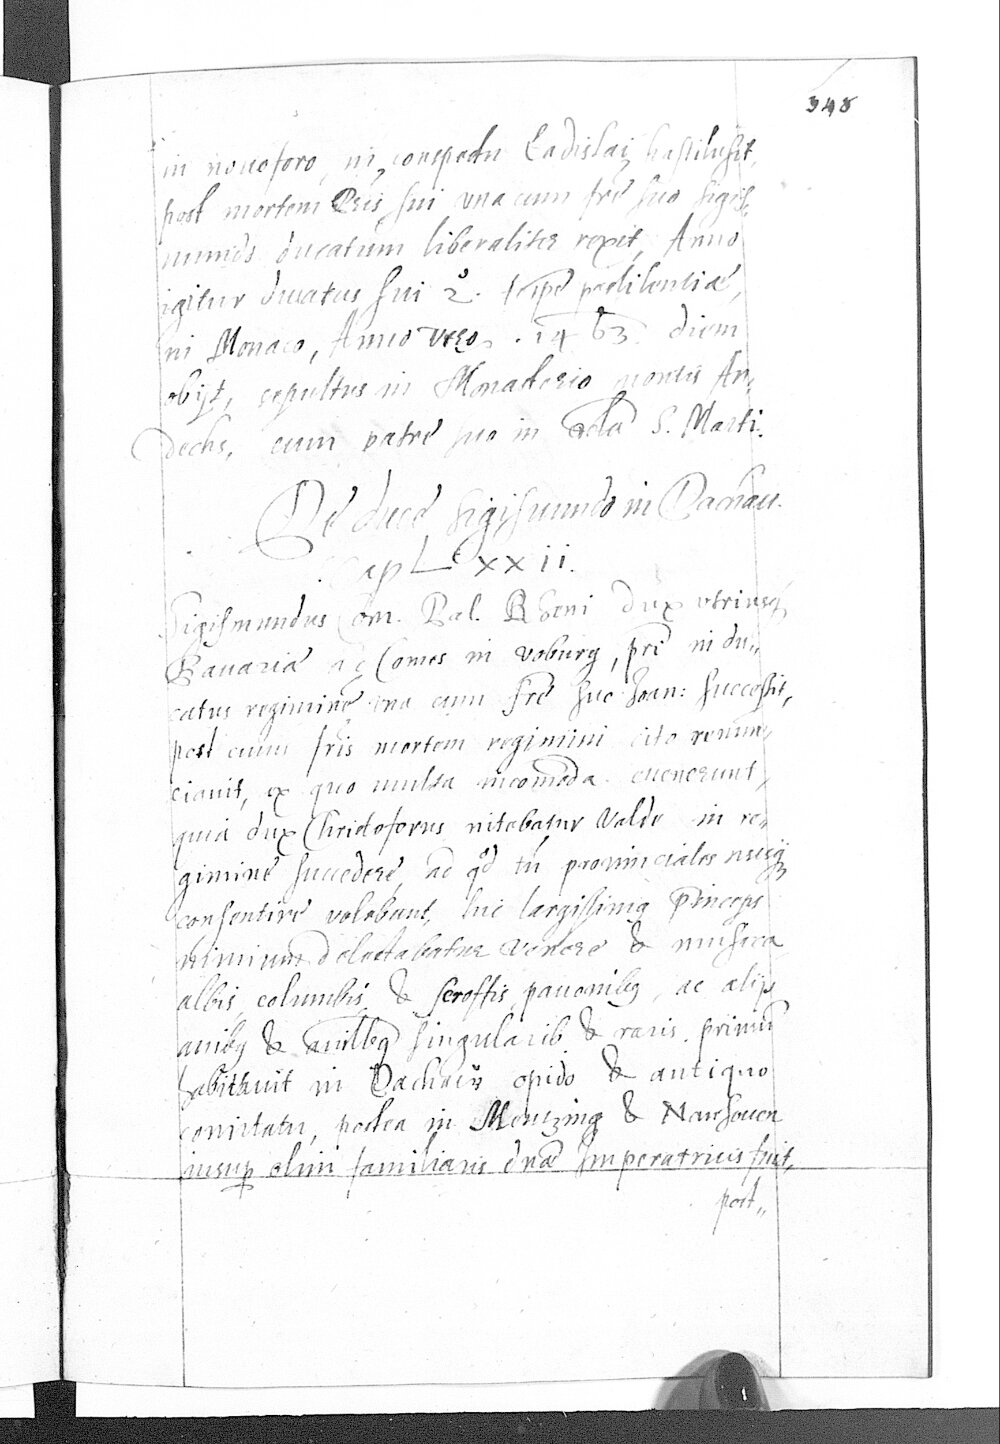 348
in nouoforo, in conspectu Ladislai hastilusit,
post mortem Pris sui una cum fre suo Sigis„
mundo ducatum liberaliter rexit, Anno
igitur ducatus sui 2. tempe pestilentiae,
in Monaco, Anno vero . 1463. diem
obijt, sepultus in Monasterio montis An„
dechs, cum patre suo in cela S. Marti.
De duce Sigismundo in Dachau.
Cap LXXII.
Sigismundus Com. Pal. Rheni dux utriusq
Bauariae ac Comes in voburg, pri in du„
catus regimine una cum fre suo Joan: successit,
post cuius fris mortem regimini cito renun„
ciauit, ex quo multa incomoda euenerunt,
quia dux Christoforus nitebatur valde in re„
gimine succedere, ad qd tn prouinciales nusq
consentire volebant, hic largissimus princeps
nimium delectabatur venere & musica
albis columbis, & scroffis pauonibus, ac alijs
auibus & animalibus singularib & raris. primum
habitauit in Dachau opido & antiquo
comitatu, postea in Mentzing & Neuhouen
insup olim familiaris dnae Imperatricis fuit,
post„